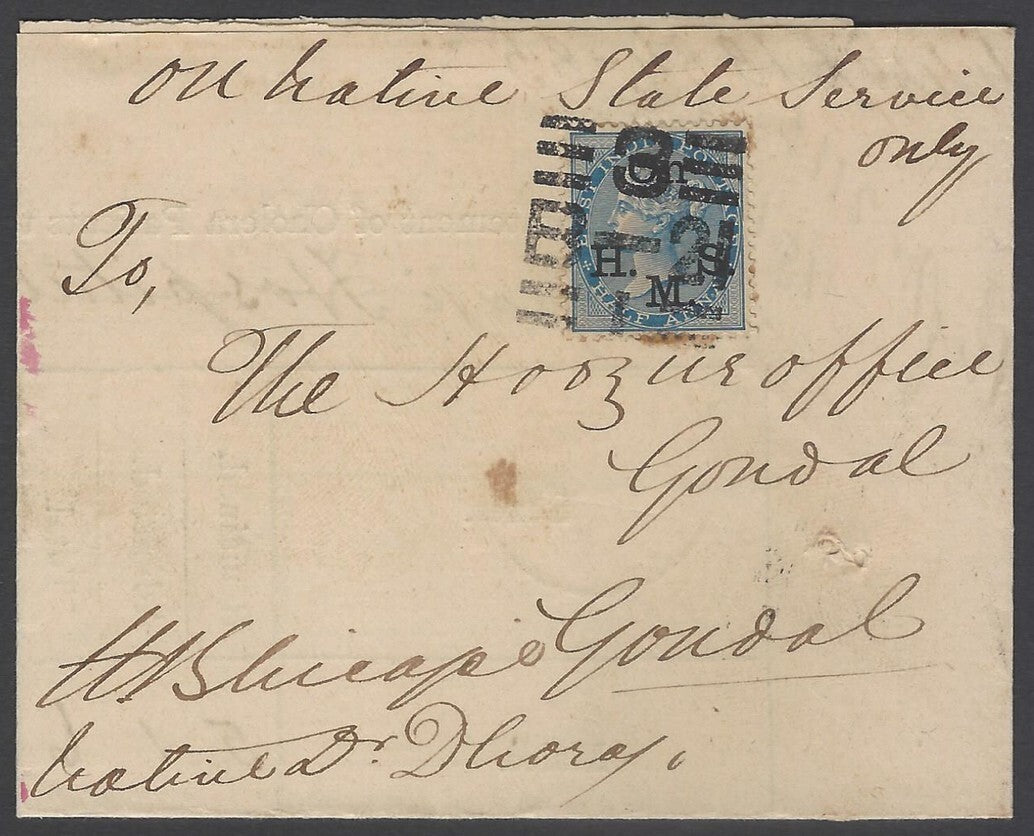 On Native State Service
only
EAST INDIA POSTAGE
On
H. M. S.
HALF ANNA
8
2
To,
The Hoozur office
Gondal
Gondal
Native Dr. Dhoraji